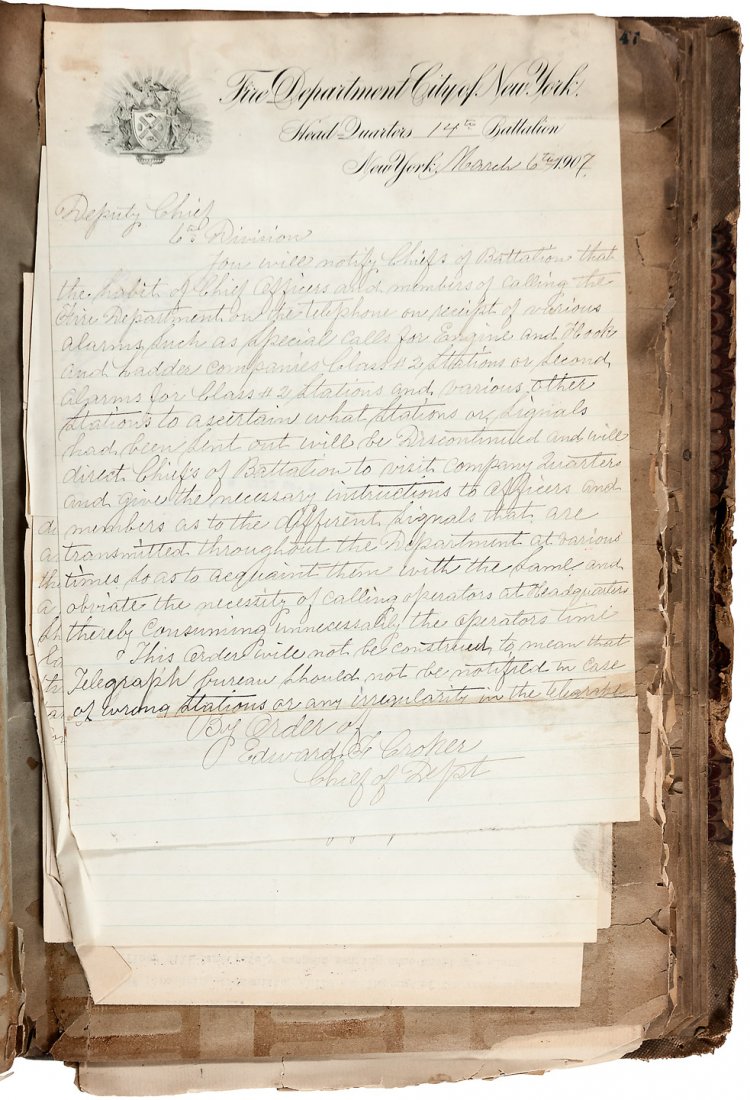 41
Fire Department City of New York.
Head Quarters 14th Battalion
New York, March 6th 1907.
Deputy Chief
6th Division
You will notify Chiefs of Battalion that
the habit of Chief Officers and members of calling the
Fire Department on the telephone on receipt of various
alarms, such as special calls for Engine and Hook
and Ladder companies Class # 2 Stations or second
alarms for Class # 2 Stations and various other
stations to ascertain what stations or signals
had been sent out will be Discontinued and will
direct Chiefs of Battalion to visit company Quarters
and give the necessary instructions to officers and
members as to the different signals that are
transmitted throughout the Department at various
times so as to acquaint them with the same and
obviate the necessity of calling operators at Headquarters
thereby consuming unnecessarily the operators time
This Order will not be construed to mean that
Telegraph bureau should not be notified in case
of wrong stations or any irregularity in the telegraph
By Order of
Edward F Croker
Chief of Dept